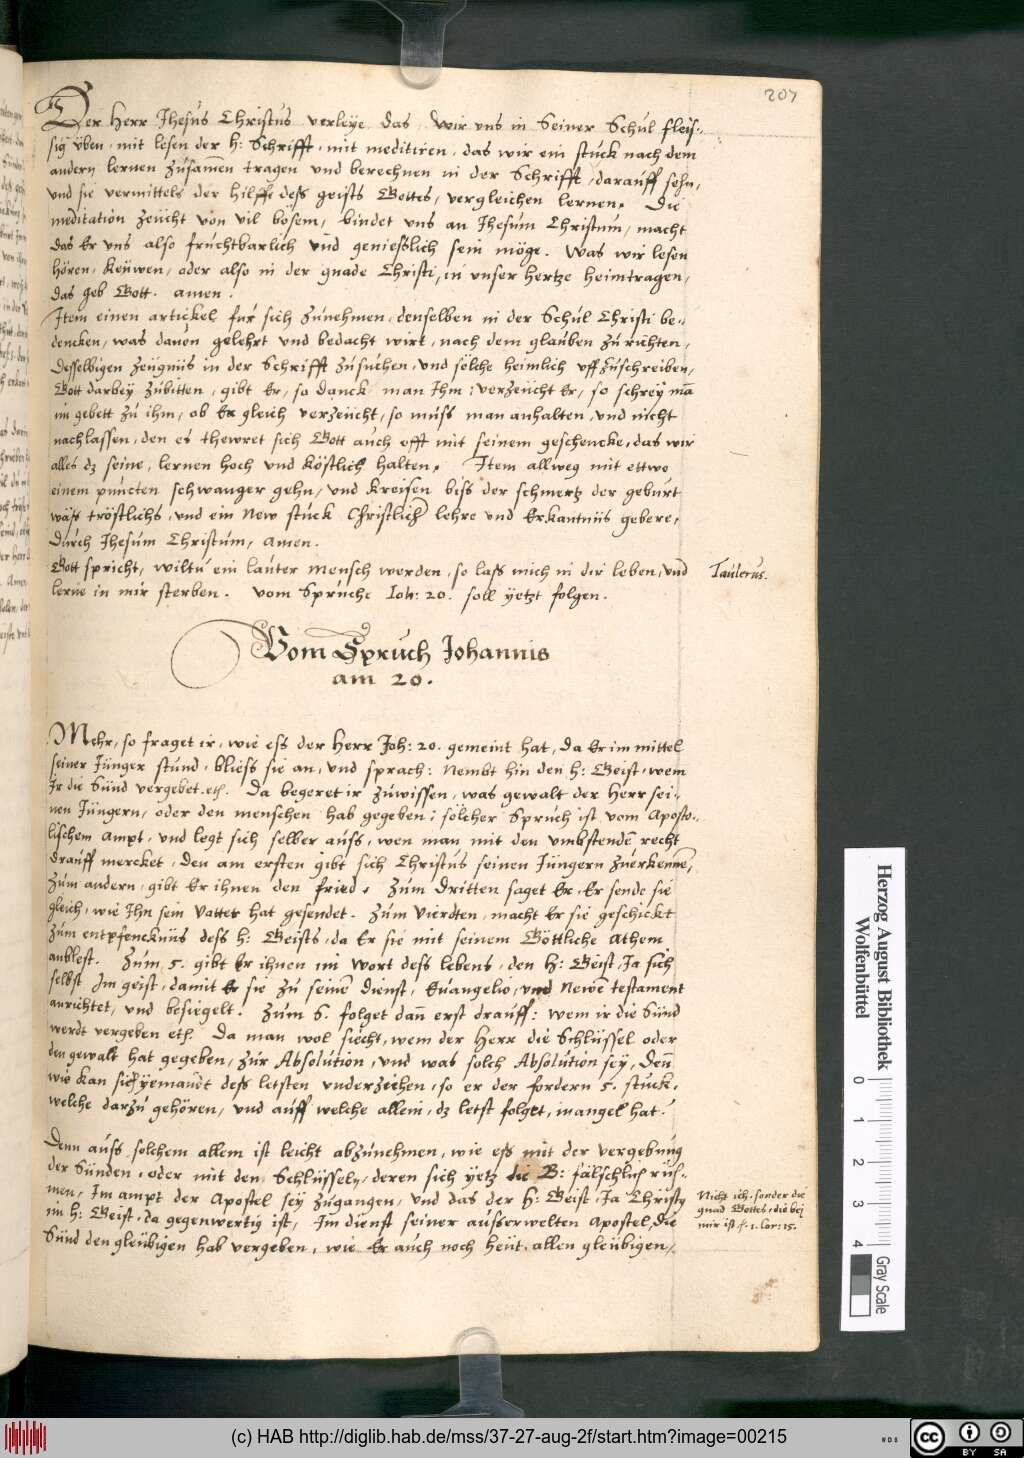 207
Der Herr Jhesus Christus verleÿe das, wir uns in Seiner Schul fleis-
sig üben, mit lesen der h: Schrifft, mit meditiren, das wir ein stuck nach dem
andern lernen zusam̄en tragen und berechnen in der Schrifft, darauff sehn,
und sie vermittels der hilffe deß geists Gottes, vergleichen lernen. Die
meditation zeücht von vil bösem, bindet uns an Jhesum Christum, macht
das Er uns also fruchtbarlich und geniesslich sein möge. Was wir lesen
hören, keüwen, oder also in der gnade Christi, in unser hertze heimtragen,
das geb Gott. amen.
Item einen artickel für sich zunehmen, denselben in der Schul Christi be-
dencken, was davon gelehrt und bedacht wirt, nach dem glauben zu richten,
desselbigen zeügnus in der Schrifft zusuchen, und solche heimlich uff zuschreiben,
Gott darbey zubitten, gibt Er, so danck man Ihm: verzeücht Er, so schrey mā
im gebett zu ihm, ob Er gleich verzeücht, so muss man anhalten, und nicht
nachlassen, den es thewret sich Gott auch offt mit seinem geschencke, das wir
alles dz seine, lernen hoch und köstlich halten. Item allweg mit ettwo
einem puncten schwanger gehn, und kreisen biss der schmertz der geburt
wäss tröstlichs, und ein New stuck Christlicher lehre und Erkantnüs gebere,
durch Jhesum Christum, amen.
Gott spricht, wiltu ein lauter mensch werden, so lass mich in dir leben, und
lerne in mir sterben. vom Spruche Joh: 20. soll yetzt folgen.
Taulerus.
Vom Spruch Johannis
am 20.
Mehr, so fraget ir, wie ess der Herr Joh: 20. gemeint hat, da Er im mittel
seiner Jünger stund, bliess sie an, und sprach: Nembt hin den h: Geist, wem
Ir die Sünd vergebet. etc. Da begeret ir zuwissen, was gewalt der Herr sei-
nen Jüngern, oder den menschen hab gegeben: sölcher Spruch ist vom Aposto-
lischem ampt, und legt sich selber auss, wen man mit den umbstendē recht
drauff mercket, den am ersten gibt sich Christus seinen Jüngern zuerkennē,
zum andern, gibt Er ihnen den fried, zum dritten saget Er, Er sende sie
gleich, wie Ihn sein Vatter hat gesendet. zum vierdten, macht Er sie geschickt
zum entpfencknüs dess h: Geists, da Er sie mit seinem Göttliche Athem
anblest. Zum 5. gibt Er ihnen im wort dess lebens, den H: Geist, Ja sich
selbst Im geist, damit Er sie zu seinē dienst, Euangelio, und Newē testament
anrichtet, und besiegelt. Zum 6. folget dan̄ erst drauff: wem ir die Sünd
werdt vergeben etc. Da man wol siecht, wem der Herr die Schlüssel oder
den gewalt hat gegeben, zur Absolution, und was solch Absolution sey, Den̄
wie kan sich yemandt dess letsten underziehen, so er der fordern 5. stuck,
welche darzu gehören, und auff welche allein, dz letst folget, mangel hat.
Denn auss solchem allem ist leicht abzunehmen, wie ess mit der vergebung
der Sünden, oder mit den Schlüsseln, deren sich yetz die B: fälschlich rüh-
men, Im ampt der Apostel sey zugangen, und das der H: Geist, Ja Christus
im h: Geist, da gegenwertig ist, Im dienst seiner ausserwelten Apostel, die
Sünd den gleübigen hab vergeben, wie Er auch noch heüt allen gleübigen,
Nicht ich, sonder die
gnad Gottes, die bej
mir ist f. 1. Cor: 15.
Herzog August Bibliothek
Wolfenbüttel
0 1 2 3 4
Gray Scale
(c) HAB http://diglib.hab.de/mss/37-27-aug-2f/start.htm?image=00215
WDB
cc BY SA